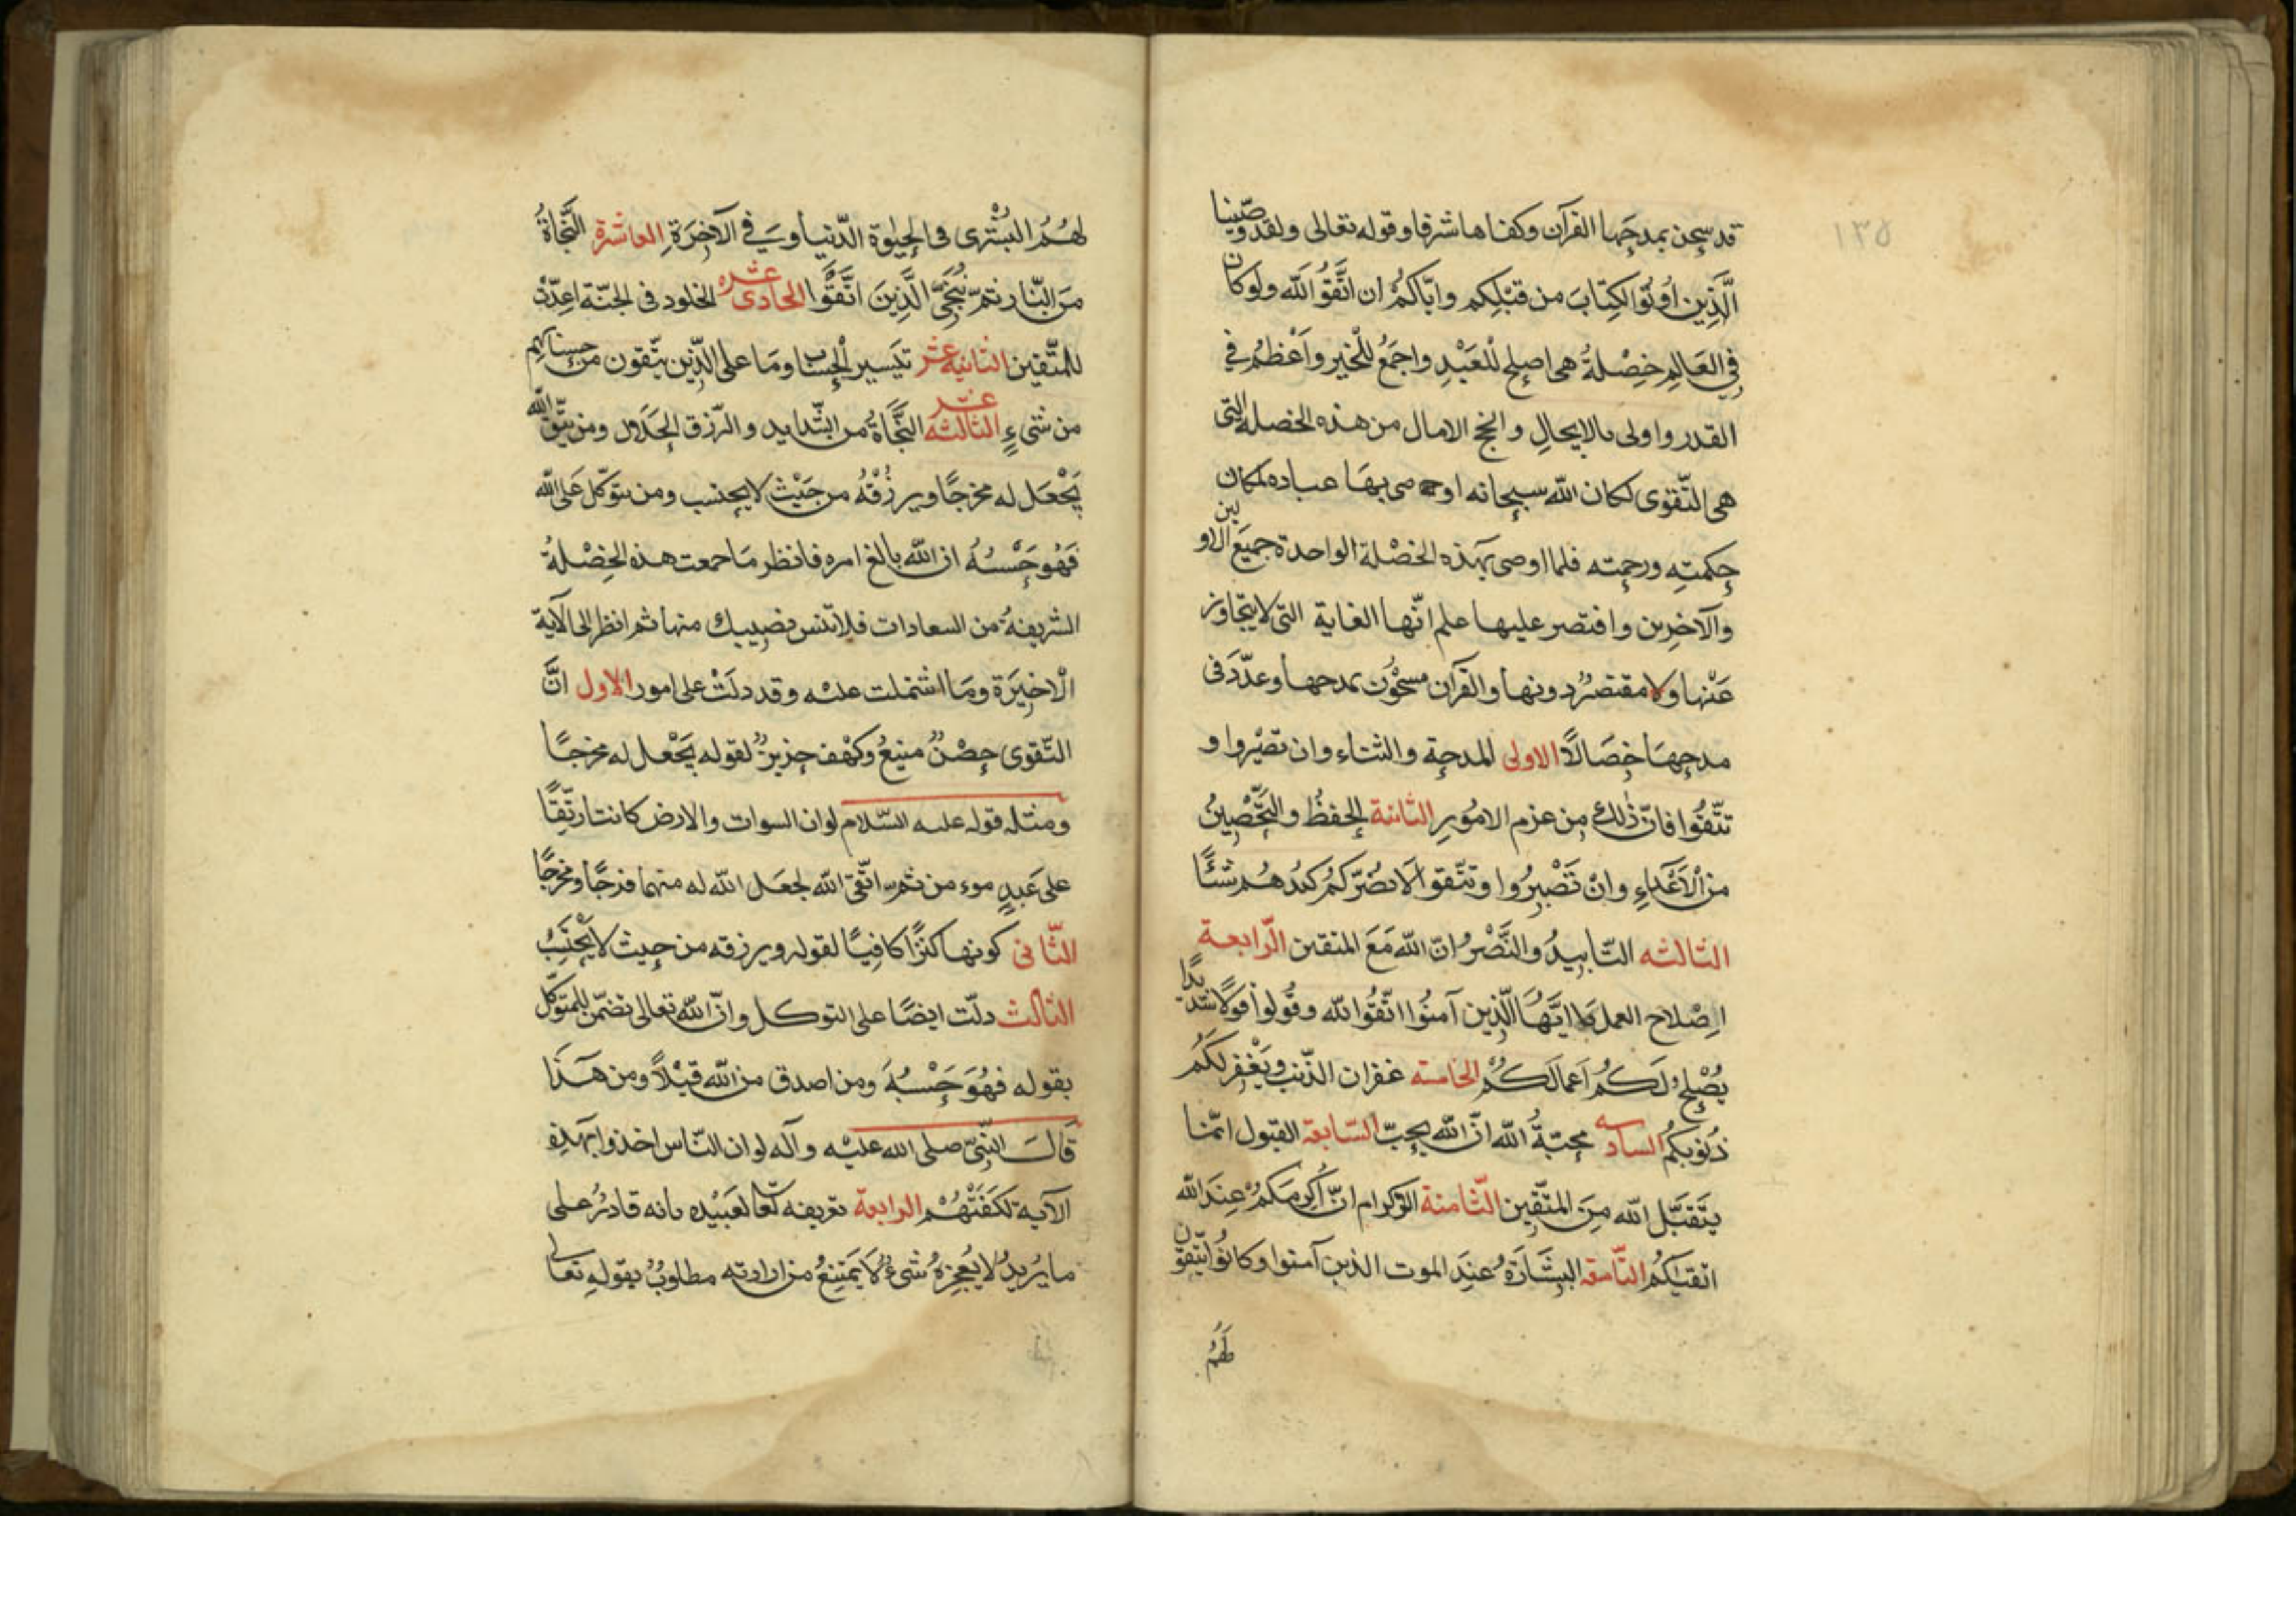 ١٣٥
قد سحن بمدحها القرآن وكفاها شرفا وقوله تعالى ولقد وصّينا
الَّذِين اُوتُوا الكِتابَ من قبْلِكم وايّاكُمْ ان اتَّقوُا اللّه ولوكان
فِي العَالمِ خِصْلةُ هى اصلح للْعَبْدِ واجمَعُ للْخير واَعْظمُ فِي
القدر واولى بالايحالِ وانجح الامال من هذه الخصلة التى
هى التّقوى لكان اللّه سبحانه اوصى بهَا عباده لمكان
حِكمتِهِ ورحمته فلما اوصى بهَذه الخصْلة الواحدة جميَع الاولين
والآخرين واقتصر عليها علم انّها الغاية التى لا يتجاوز
عَنْها ولا مقتصرُ دونها والقرآن مسحوُن بمدحها وعدّدَ فى
مدحِهَا خِصَالًا الاولى المدحة والثناء وان تصْبروا و
تتّقُوا فانّ ذٰلك مِن عزم الامُورِ الثانية الحفظُ والتّحْصِينُ
من الاَعْداءِ وانْ تَصْبِرُوا وتتّقوا لَا يضُرّكمُ كيدُهُم شيْئًا
الثالثه التّاييدُ والنَّصْرُ انّ اللّه مَعَ المتقين الرّابعة
اِصْلاح العمل يا ايَّهُاَ الَّذين آمنُوا اتّقُوا اللّه وقُولوا قولًا سَديدًا
يُصْلح لَكُم اَعمالَكُمْ الخامسه غفران الذّنب ويَغْفِر لَكمُ
ذُنوبكمُ السادسه محبّةُ اللّه انّ اللّه يحِبّ السّابعة القبول انّما
يتَقبّل اللّه مِنَ المتّقِين الثّامنة الاكرام انّ اَكرمَكمُ عِندَ اللّه
اتقيٰكمُ التّاسعة البِشَارَةُ عنِدَ الموت الذين آمنوا وكانوُا يتّقون
لهَمُ
لهُمُ البُشْرى فى الحيٰوة الدّنيا وَ فِي الآخِرَةِ العاشرة النَّجاةُ
مِنَ النّار ثمّ نُنجّى الَّذِينَ اتَّقَوا الحادى عشره الخلود فى الجنّة اعِدّت
للمتّقين الثانية عشر تَيسير الحِساب ومَا على الذّين يتّقون من حسابهم
من شىءٍ الثالثه عشر النَّجَاةُ من الشّدايد والرّزق الحَلال ومن يتّق اللّه
يَجْعَل له مخرجًا ويرزُقهُ من حَيْث لا يحتسب ومن يتوكّل عَلى اللّه
فَهُوَ حَسْبُهُ ان اللّه بالغ امره فانظر مَا جمعت هذه الخِصْلةُ
الشريفةُ من السعادات فلا تنس نصِيبك منها ثم انظر الى الآية
الْاخِيَرة ومَا اشتملت عليْه وقد دلَّتْ على امور الاول انَّ
التّقوى حِصْنٌ منيعُ وكهْف حِزيزٌ لقوله يَجْعل له مخرجًا
ومثله قوله عليه السّلام لو ان السموات والارض كانتا رتقًا
على عَبدٍ موءمن ثم اتّقى اللّه لجعَل اللّه له منهما فرجًا ومخرجًا
الثّانى كونها كنزًا كافِيًا لقوله ويرزقه من حِيث لايَحْتَسِبُ
الثالث دلّت ايضًا على التوكل وانّ اللّه تعالى تضمّن للمتوكّل
بقوله فهُوَ حَسْبُهَ ومن اصدق من اللّه قيْلاً ومن هَذَا
قَالَ النّبِىّ صلى اللّه عليْه وآله لو ان النّاس اخذوا بهَذِه
الآية لكَفَتْهُمْ الرابعة تعريفه تعالى لعَبيْده بانه قادرُ على
ما يُريدُ لا يُعجِزهُ شىءٌ ولَا يَمْتنِعُ من ارادته مطلوبُ بقولِهِ تعالى